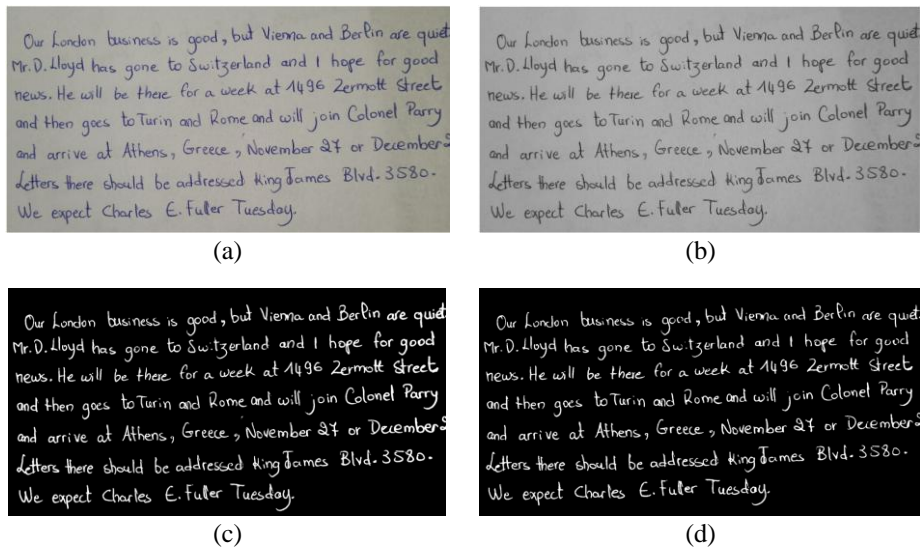 Our London business is good, but Vienna and Berlin are quiet
Mr. D. Lloyd has gone to Switzerland and I hope for good
news. He will be there for a week at 1496 Zermott Street
and then goes to Turin and Rome and will join Colonel Parry
and arrive at Athens, Greece, November 27 or December
Letters there should be addressed King James Blvd. 3580.
We expect Charles E. Fuller Tuesday.
(a)
Our London business is good, but Vienna and Berlin are quiet
Mr. D. Lloyd has gone to Switzerland and I hope for good
news. He will be there for a week at 1496 Zermott Street
and then goes to Turin and Rome and will join Colonel Parry
and arrive at Athens, Greece, November 27 or December
Letters there should be addressed King James Blvd. 3580.
We expect Charles E. Fuller Tuesday.
(b)
Our London business is good, but Vienna and Berlin are quiet
Mr. D. Lloyd has gone to Switzerland and I hope for good
news. He will be there for a week at 1496 Zermott Street
and then goes to Turin and Rome and will join Colonel Parry
and arrive at Athens, Greece, November 27 or December
Letters there should be addressed King James Blvd. 3580.
We expect Charles E. Fuller Tuesday.
(c)
Our London business is good, but Vienna and Berlin are quiet
Mr. D. Lloyd has gone to Switzerland and I hope for good
news. He will be there for a week at 1496 Zermott Street
and then goes to Turin and Rome and will join Colonel Parry
and arrive at Athens, Greece, November 27 or December
Letters there should be addressed King James Blvd. 3580.
We expect Charles E. Fuller Tuesday.
(d)